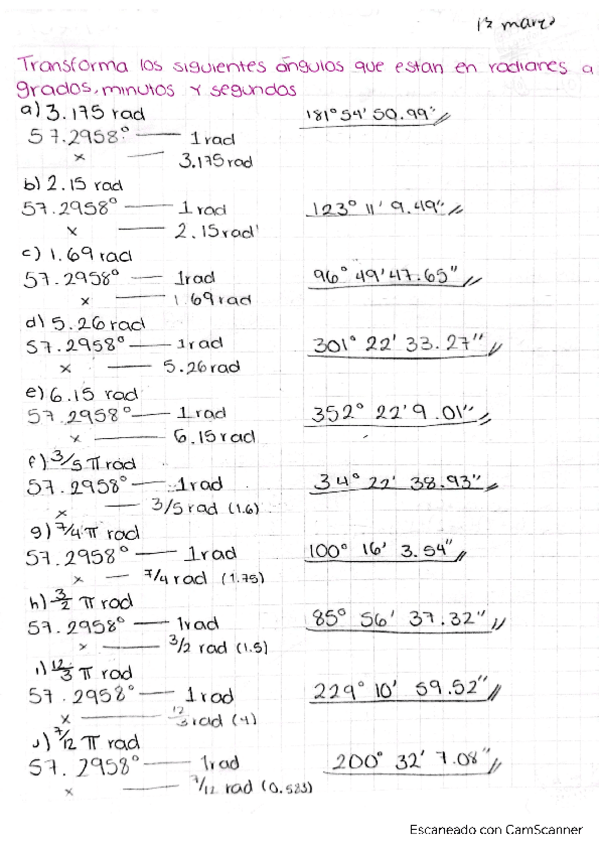 13 marzo
Transforma los siguientes ángulos que estan en radianes a
grados, minutos y segundos
a) 3.175 rad 181° 54' 50.99"
57.2958° 1 rad
x 3.175 rad
b) 2.15 rad
57.2958° 1 rad 123° 11' 9.49"
x 2.15 rad
c) 1.69 rad
57.2958° 1rad 96° 49' 47.65"
x 1.69 rad
d) 5.26 rad
57.2958° 1rad 301° 22' 33.27"
x 5.26 rad
e) 6.15 rad
57.2958° 1 rad 352° 22' 9.01"
x 6.15 rad
f) 3/5 π rad
57.2958° 1rad 34° 22' 38.93"
x 3/5 rad (1.6)
g) 7/4 π rad
57.2958° 1 rad 100° 16' 3.54"
x 7/4 rad (1.75)
h) 3/2 π rad
57.2958° 1rad 85° 56' 37.32"
x 3/2 rad (1.5)
i) 12/3 π rad
57.2958° 1 rad 229° 10' 59.52"
x 12/3 rad (4)
J) 7/12 π rad
57.2958° 1rad 200° 32' 7.08"
x 7/12 rad (0.583)
Escaneado con CamScanner